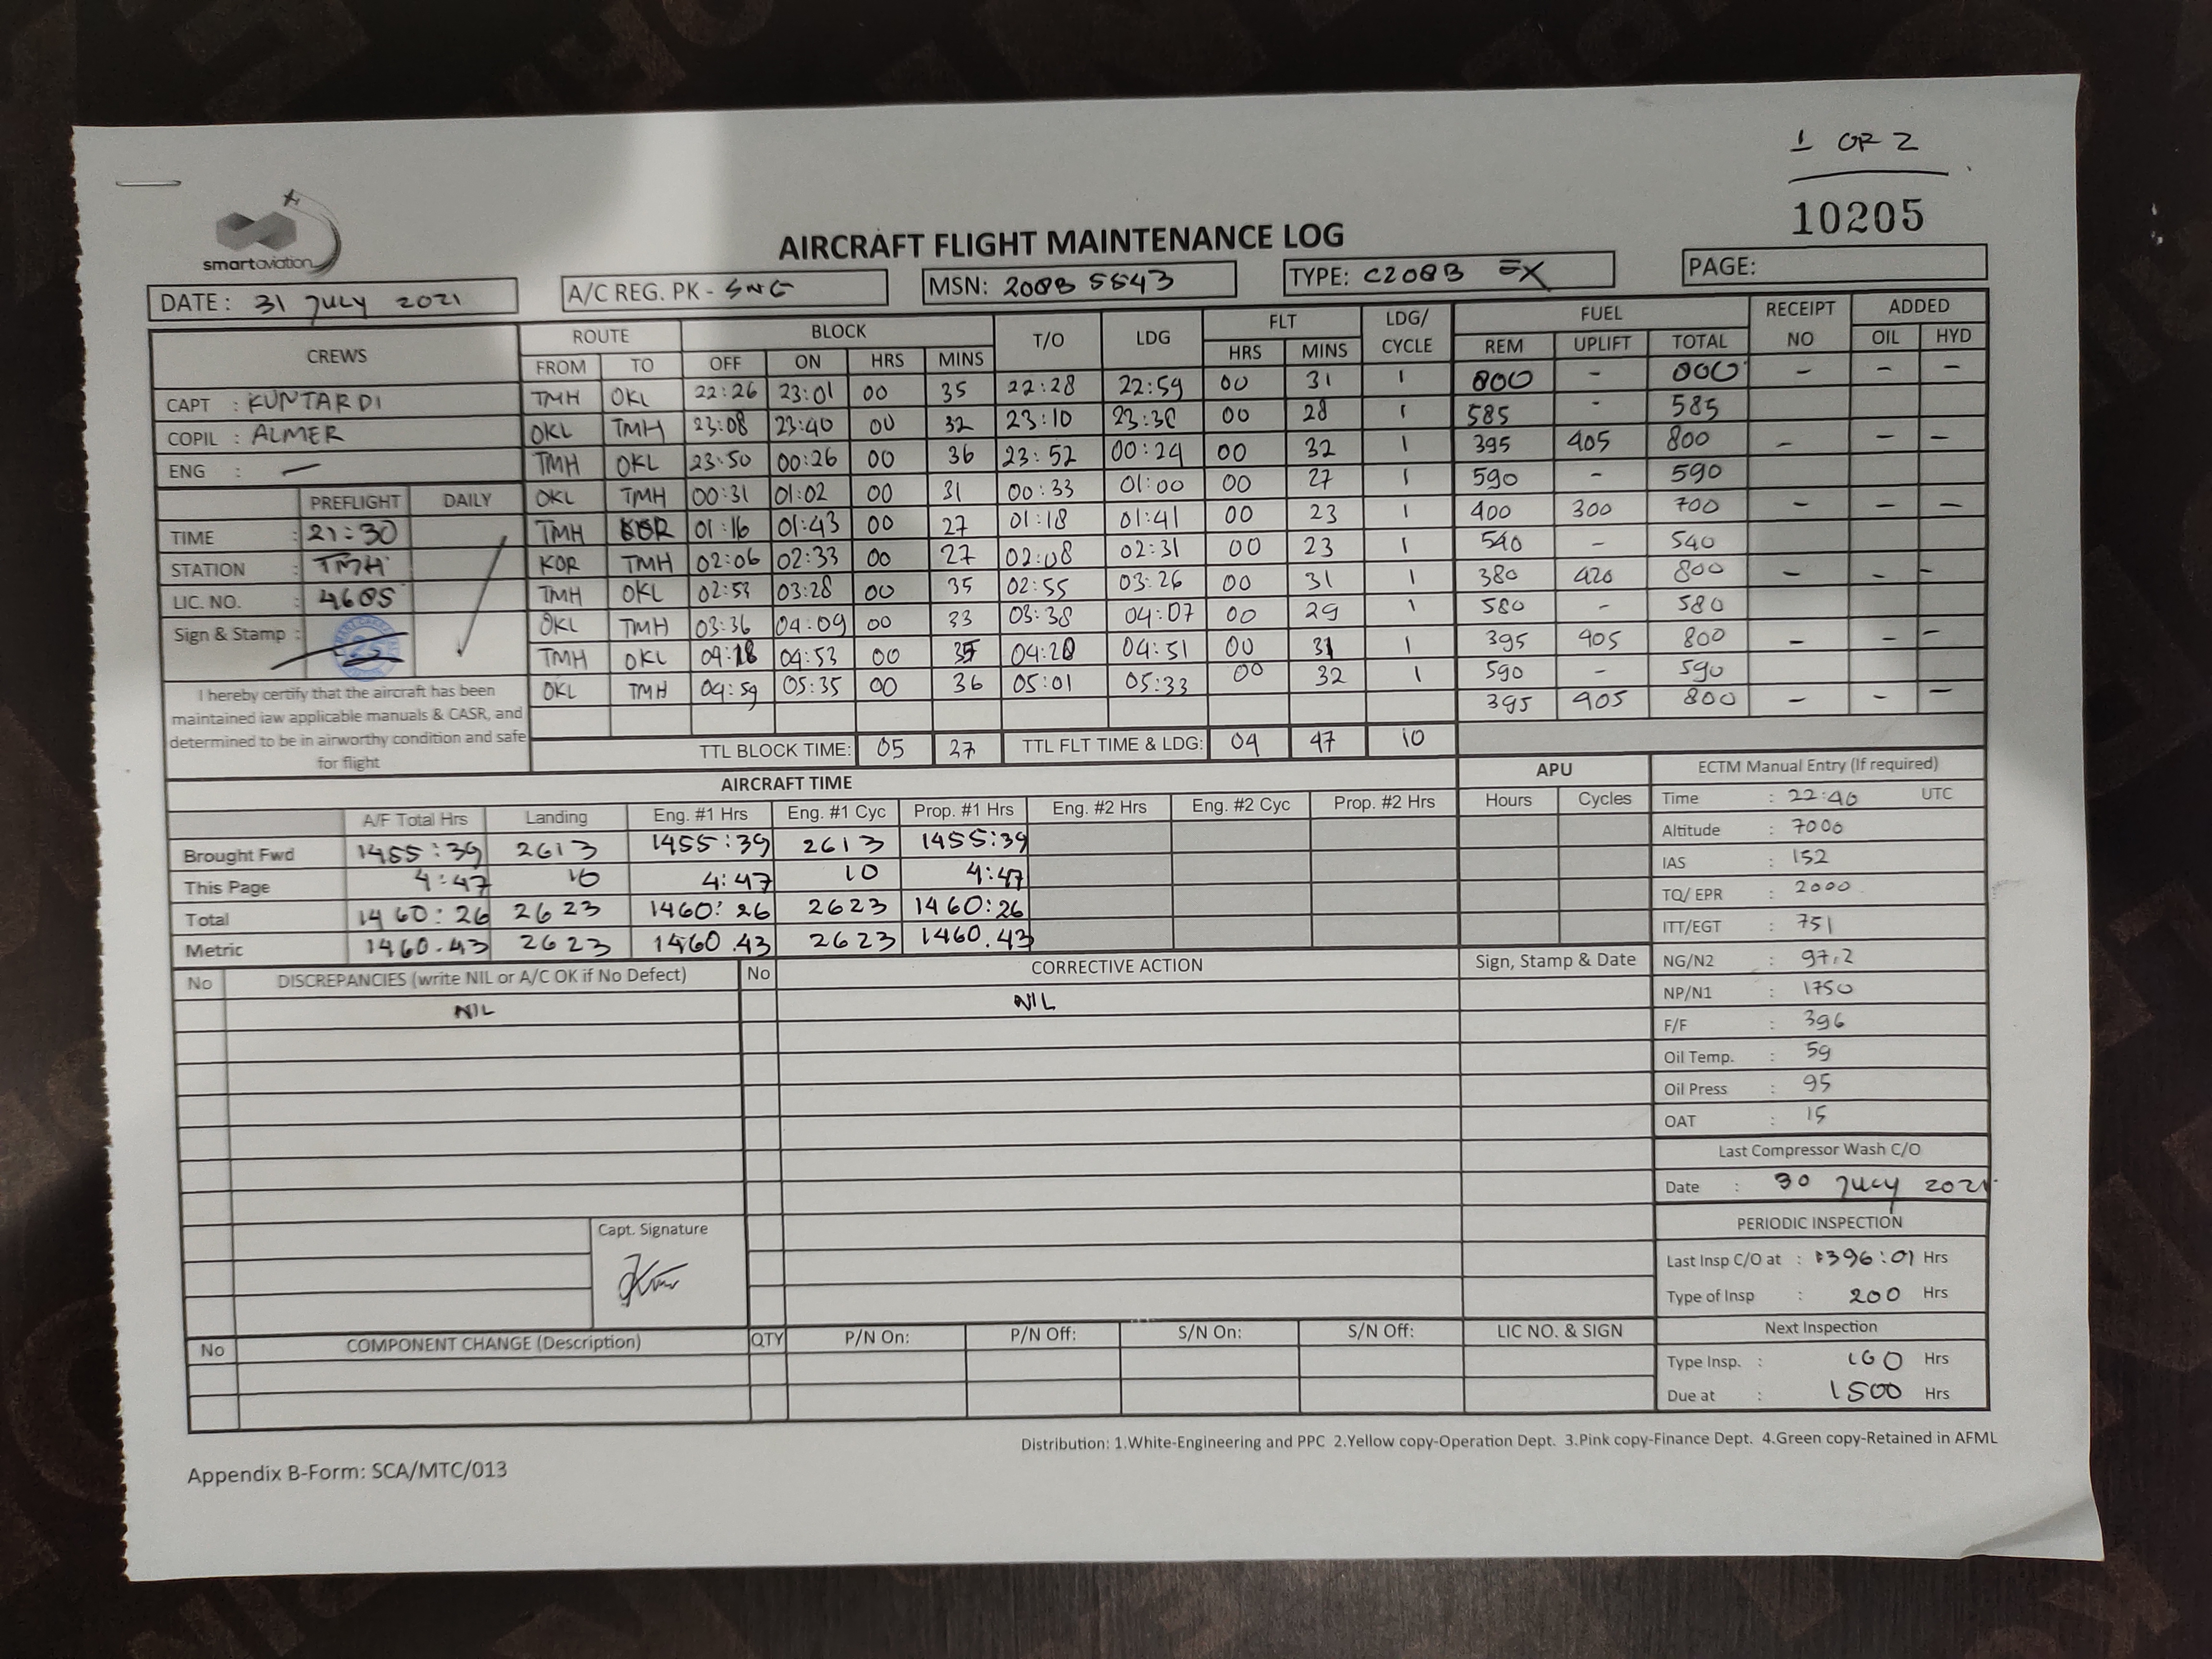 1 OF 2
10205
smartaviation
AIRCRAFT FLIGHT MAINTENANCE LOG
DATE: 31 JULY 2021 A/C REG. PK - SNG MSN: 208B 5543 TYPE: C208B EX PAGE:
CREWS ROUTE BLOCK T/O LDG FLT LDG/ CYCLE FUEL RECEIPT NO ADDED
FROM TO OFF ON HRS MINS HRS MINS REM UPLIFT TOTAL OIL HYD
CAPT : KUNTARDI TMH OKL 22:26 23:01 00 35 22:28 22:59 00 31 1 800 - 800 - - -
COPIL : ALMER OKL TMH 23:08 23:40 00 32 23:10 23:38 00 28 1 585 - 585
ENG : - TMH OKL 23:50 00:26 00 36 23:52 00:24 00 32 1 395 405 800 - - -
PREFLIGHT DAILY OKL TMH 00:31 01:02 00 31 00:33 01:00 00 27 1 590 - 590
TIME : 21:30 TMH KOR 01:16 01:43 00 27 01:18 01:41 00 23 1 400 300 700 - - -
STATION : TMH KOR TMH 02:06 02:33 00 27 02:08 02:31 00 23 1 540 - 540
LIC. NO. : 4685 TMH OKL 02:53 03:28 00 35 02:55 03:26 00 31 1 380 420 800 - - -
Sign & Stamp : OKL TMH 03:36 04:09 00 33 03:38 04:07 00 29 1 580 - 580
TMH OKL 04:18 04:53 00 35 04:20 04:51 00 31 1 395 405 800 - - -
OKL TMH 04:59 05:35 00 36 05:01 05:33 00 32 1 590 - 590
395 405 800 - - -
I hereby certify that the aircraft has been
maintained iaw applicable manuals & CASR, and
determined to be in airworthy condition and safe
for flight
TTL BLOCK TIME: 05 27 TTL FLT TIME & LDG: 04 47 10
AIRCRAFT TIME APU
A/F Total Hrs Landing Eng. #1 Hrs Eng. #1 Cyc Prop. #1 Hrs Eng. #2 Hrs Eng. #2 Cyc Prop. #2 Hrs Hours Cycles
Brought Fwd 1455:39 2613 1455:39 2613 1455:39
This Page 4:47 10 4:47 10 4:47
Total 1460:26 2623 1460:26 2623 1460:26
Metric 1460.43 2623 1460.43 2623 1460.43
ECTM Manual Entry (If required)
Time : 22:40 UTC
Altitude : 7000
IAS : 152
TQ/ EPR : 2000
ITT/EGT : 751
NG/N2 : 97,2
NP/N1 : 1750
F/F : 396
Oil Temp. : 59
Oil Press : 95
OAT : 15
No DISCREPANCIES (write NIL or A/C OK if No Defect) No CORRECTIVE ACTION Sign, Stamp & Date
NIL NIL
Capt. Signature
Last Compressor Wash C/O
Date : 30 JULY 2021
PERIODIC INSPECTION
Last Insp C/O at : 1396:01 Hrs
Type of Insp : 200 Hrs
Next Inspection
Type Insp. : 100 Hrs
Due at : 1500 Hrs
No COMPONENT CHANGE (Description) QTY P/N On: P/N Off: S/N On: S/N Off: LIC NO. & SIGN
Distribution: 1.White-Engineering and PPC 2.Yellow copy-Operation Dept. 3.Pink copy-Finance Dept. 4.Green copy-Retained in AFML
Appendix B-Form: SCA/MTC/013